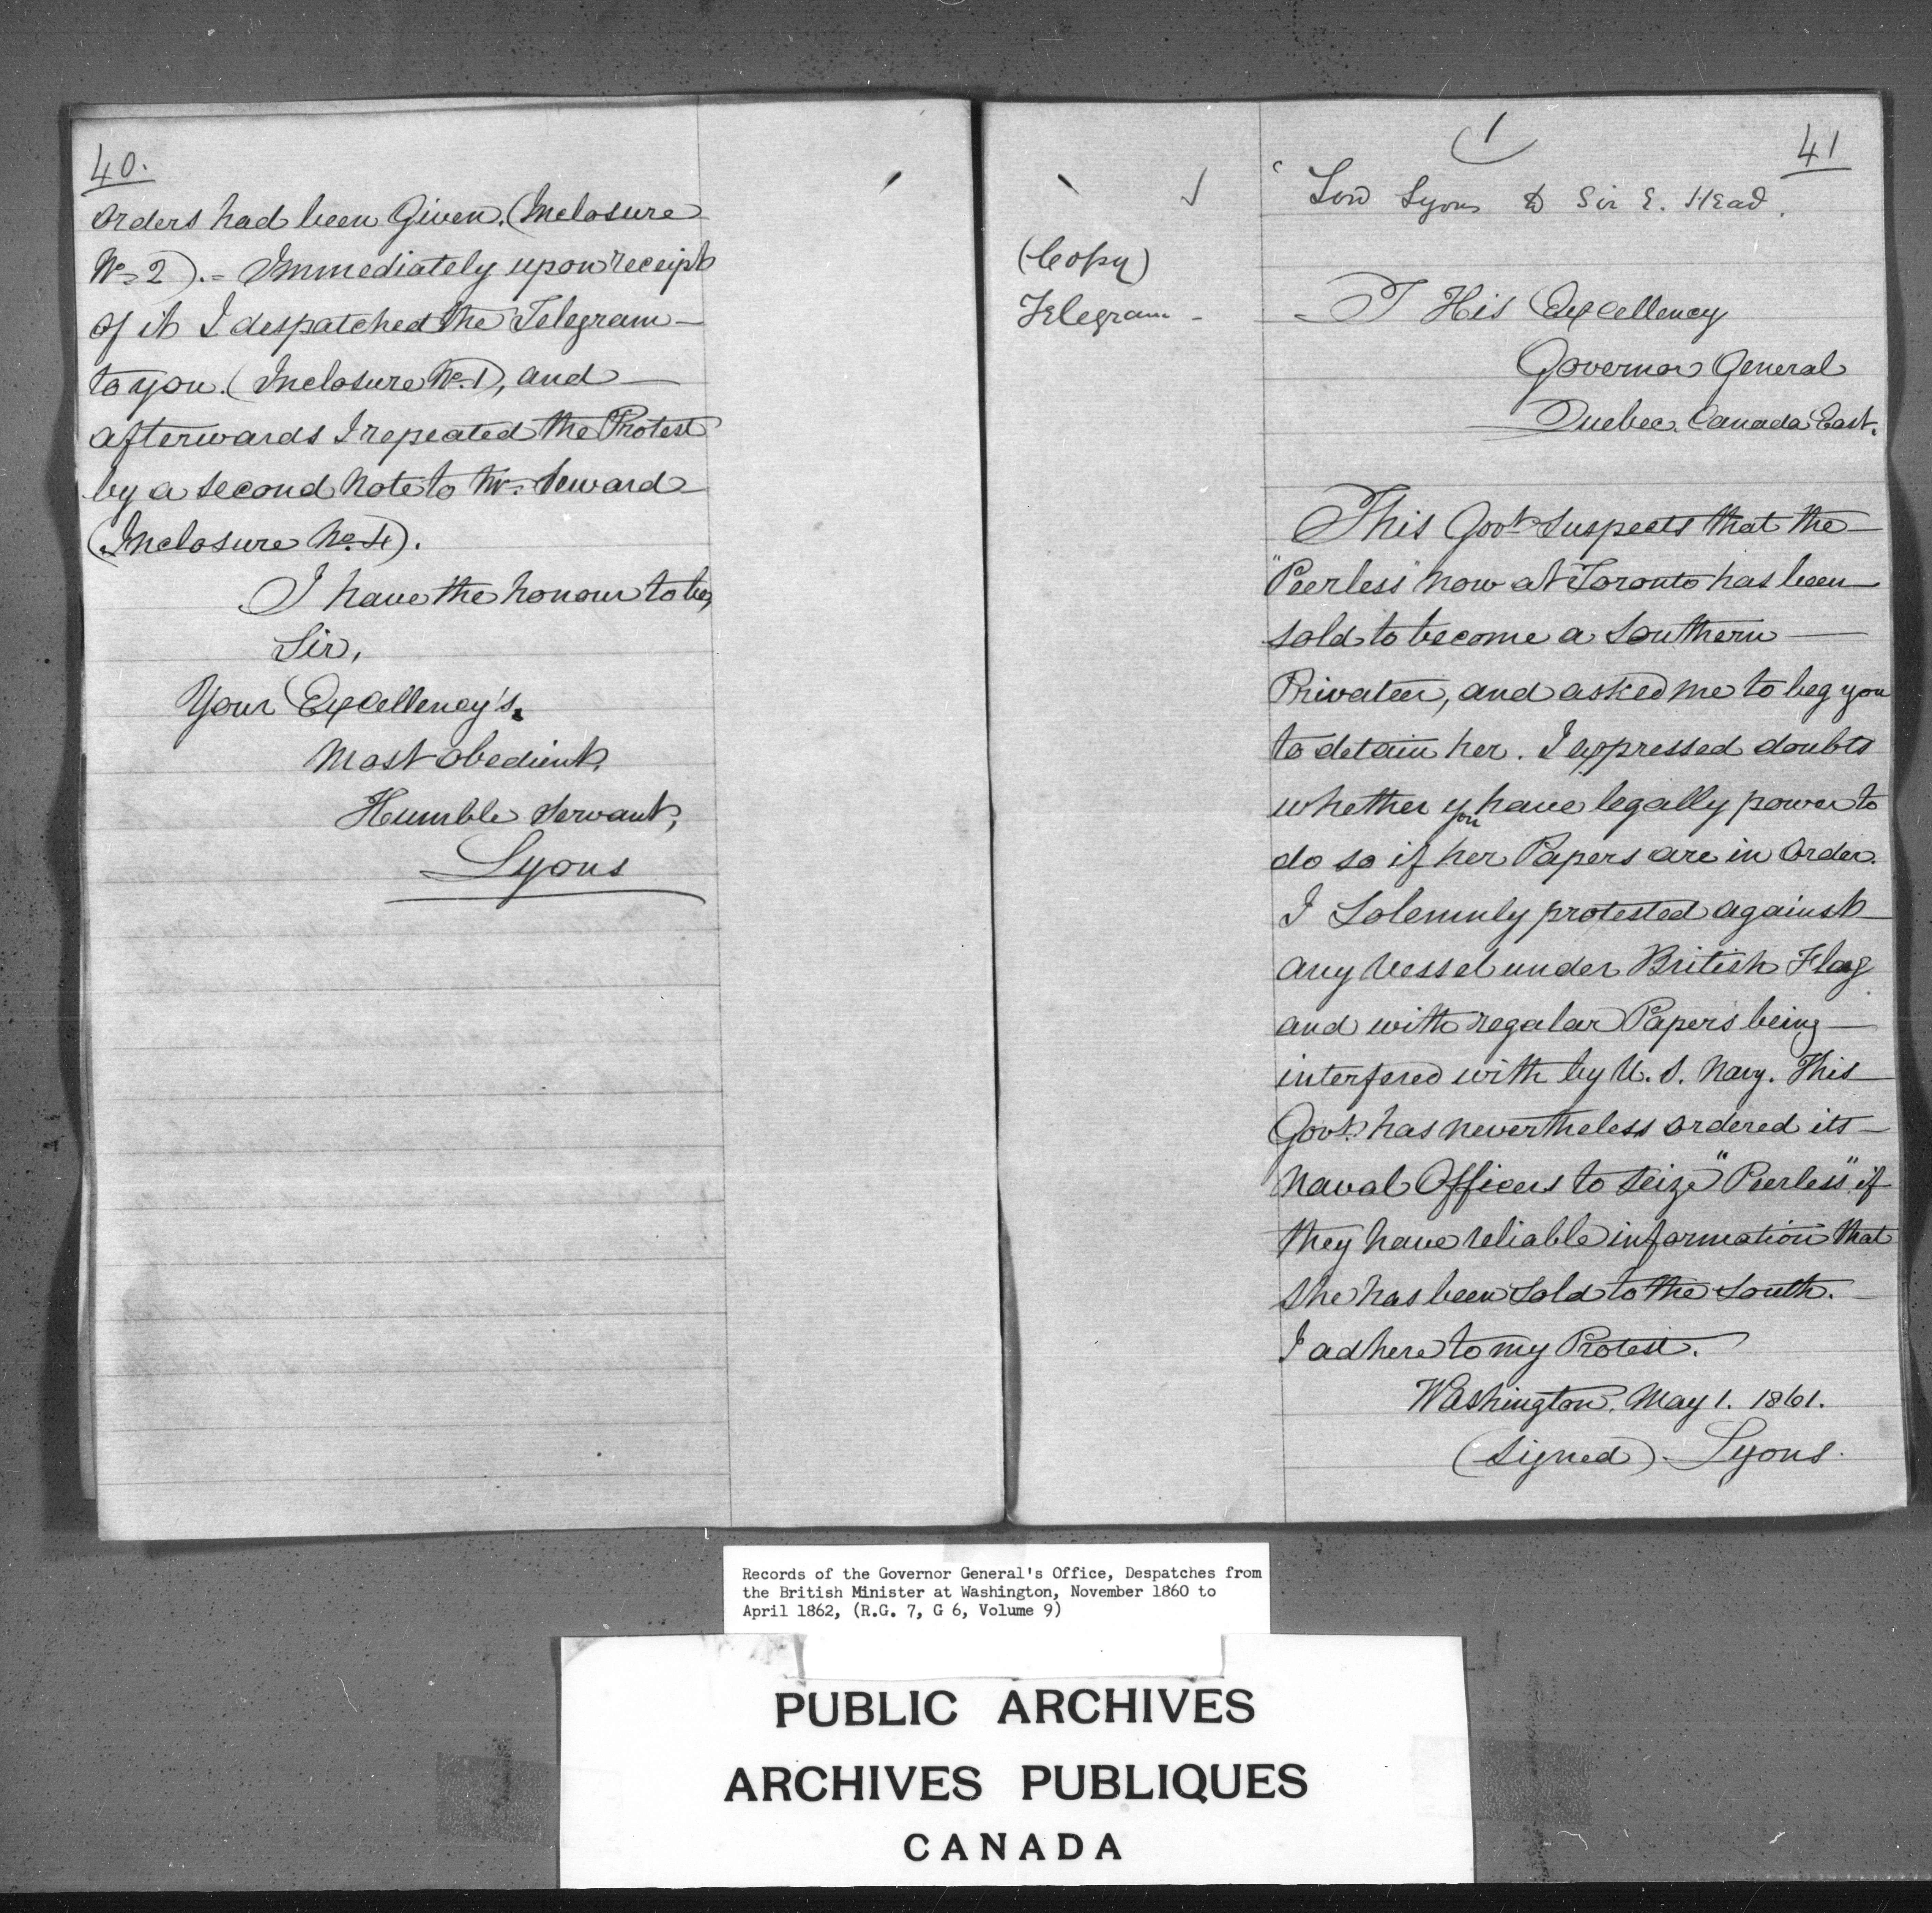 40.
orders had been Given. (Inclosure
No. 2). = Immediately upon receipt
of it I despatched the Telegram
to you. (Inclosure No. 1), and
afterwards I repeated the Protest
by a second Note to Mr. Seward
(Inclosure No. 4).
I have the honour to be,
Sir,
Your Excellency's,
Most obedient,
Humble Servant,
Lyons
1
41
Lord Lyons to Sir E. Head.
(Copy)
Telegram -
T His Excellency
Governor General
Quebec. Canada East.
This Govt. suspects that the
"Peerless" now at Toronto has been
sold to become a Southern
Privateer, and asked me to beg you
to detain her. I expressed doubts
whether you have legally power to
do so if her Papers are in Order.
I Solemnly protested against
any Vessel under British Flag
and with regular Papers being
interfered with by U. S. Navy. This
Govt. has nevertheless ordered its
Naval Officers to seize "Peerless" if
they have reliable information that
she has been sold to the South.
I adhere to my Protest.
Washington, May 1. 1861.
(Signed) Lyons.
Records of the Governor General's Office, Despatches from
the British Minister at Washington, November 1860 to
April 1862, (R.G. 7, G 6, Volume 9)
PUBLIC ARCHIVES
ARCHIVES PUBLIQUES
CANADA